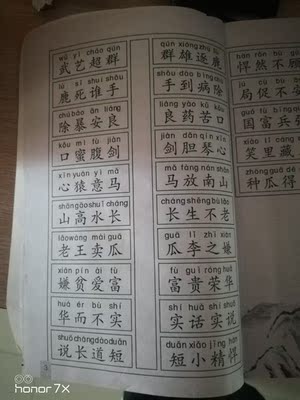 wǔ yì chāo qún
武艺超群
qún xióng zhú lù
群雄逐鹿
lù sǐ shuí shǒu
鹿死谁手
shǒu dào bìng chú
手到病除
chú bào ān liáng
除暴安良
liáng yào kǔ kǒu
良药苦口
kǒu mì fù jiàn
口蜜腹剑
jiàn dǎn qín xīn
剑胆琴心
xīn yuán yì mǎ
心猿意马
mǎ fàng nán shān
马放南山
shān gāo shuǐ cháng
山高水长
cháng shēng bù lǎo
长生不老
lǎo wáng mài guā
老王卖瓜
guā lǐ zhī xián
瓜李之嫌
xián pín ài fù
嫌贫爱富
fù guì róng huá
富贵荣华
huá ér bù shí
华而不实
shí huà shí shuō
实话实说
shuō cháng dào duǎn
说长道短
duǎn xiǎo jīng hàn
短小精悍
hàn rán bù
悍然不
局促不
国富兵
笑里藏
zhòng guā dé
种瓜得
honor 7X